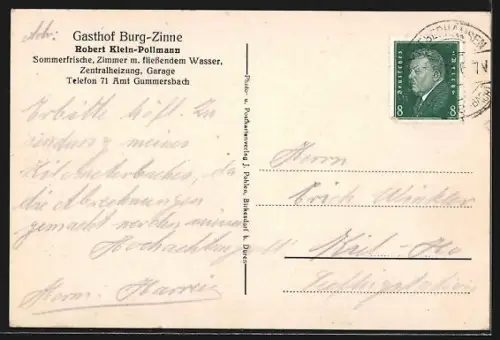 Adr:
Gasthof Burg-Zinne
Robert Klein-Pollmann
Sommerfrische, Zimmer m. fließendem Wasser,
Zentralheizung, Garage
Telefon 71 Amt Gummersbach
Erbitte höfl. Zu
sendung meines
da
die Abrechnungen
gemacht werden müssen
Hochachtungsvoll
Herm.
Photo- u. Postkartenverlag J. Pohlen, Birkesdorf b. Düren
Deutsches Reich
8 8
Herrn
Erich Winkler
Kiel-